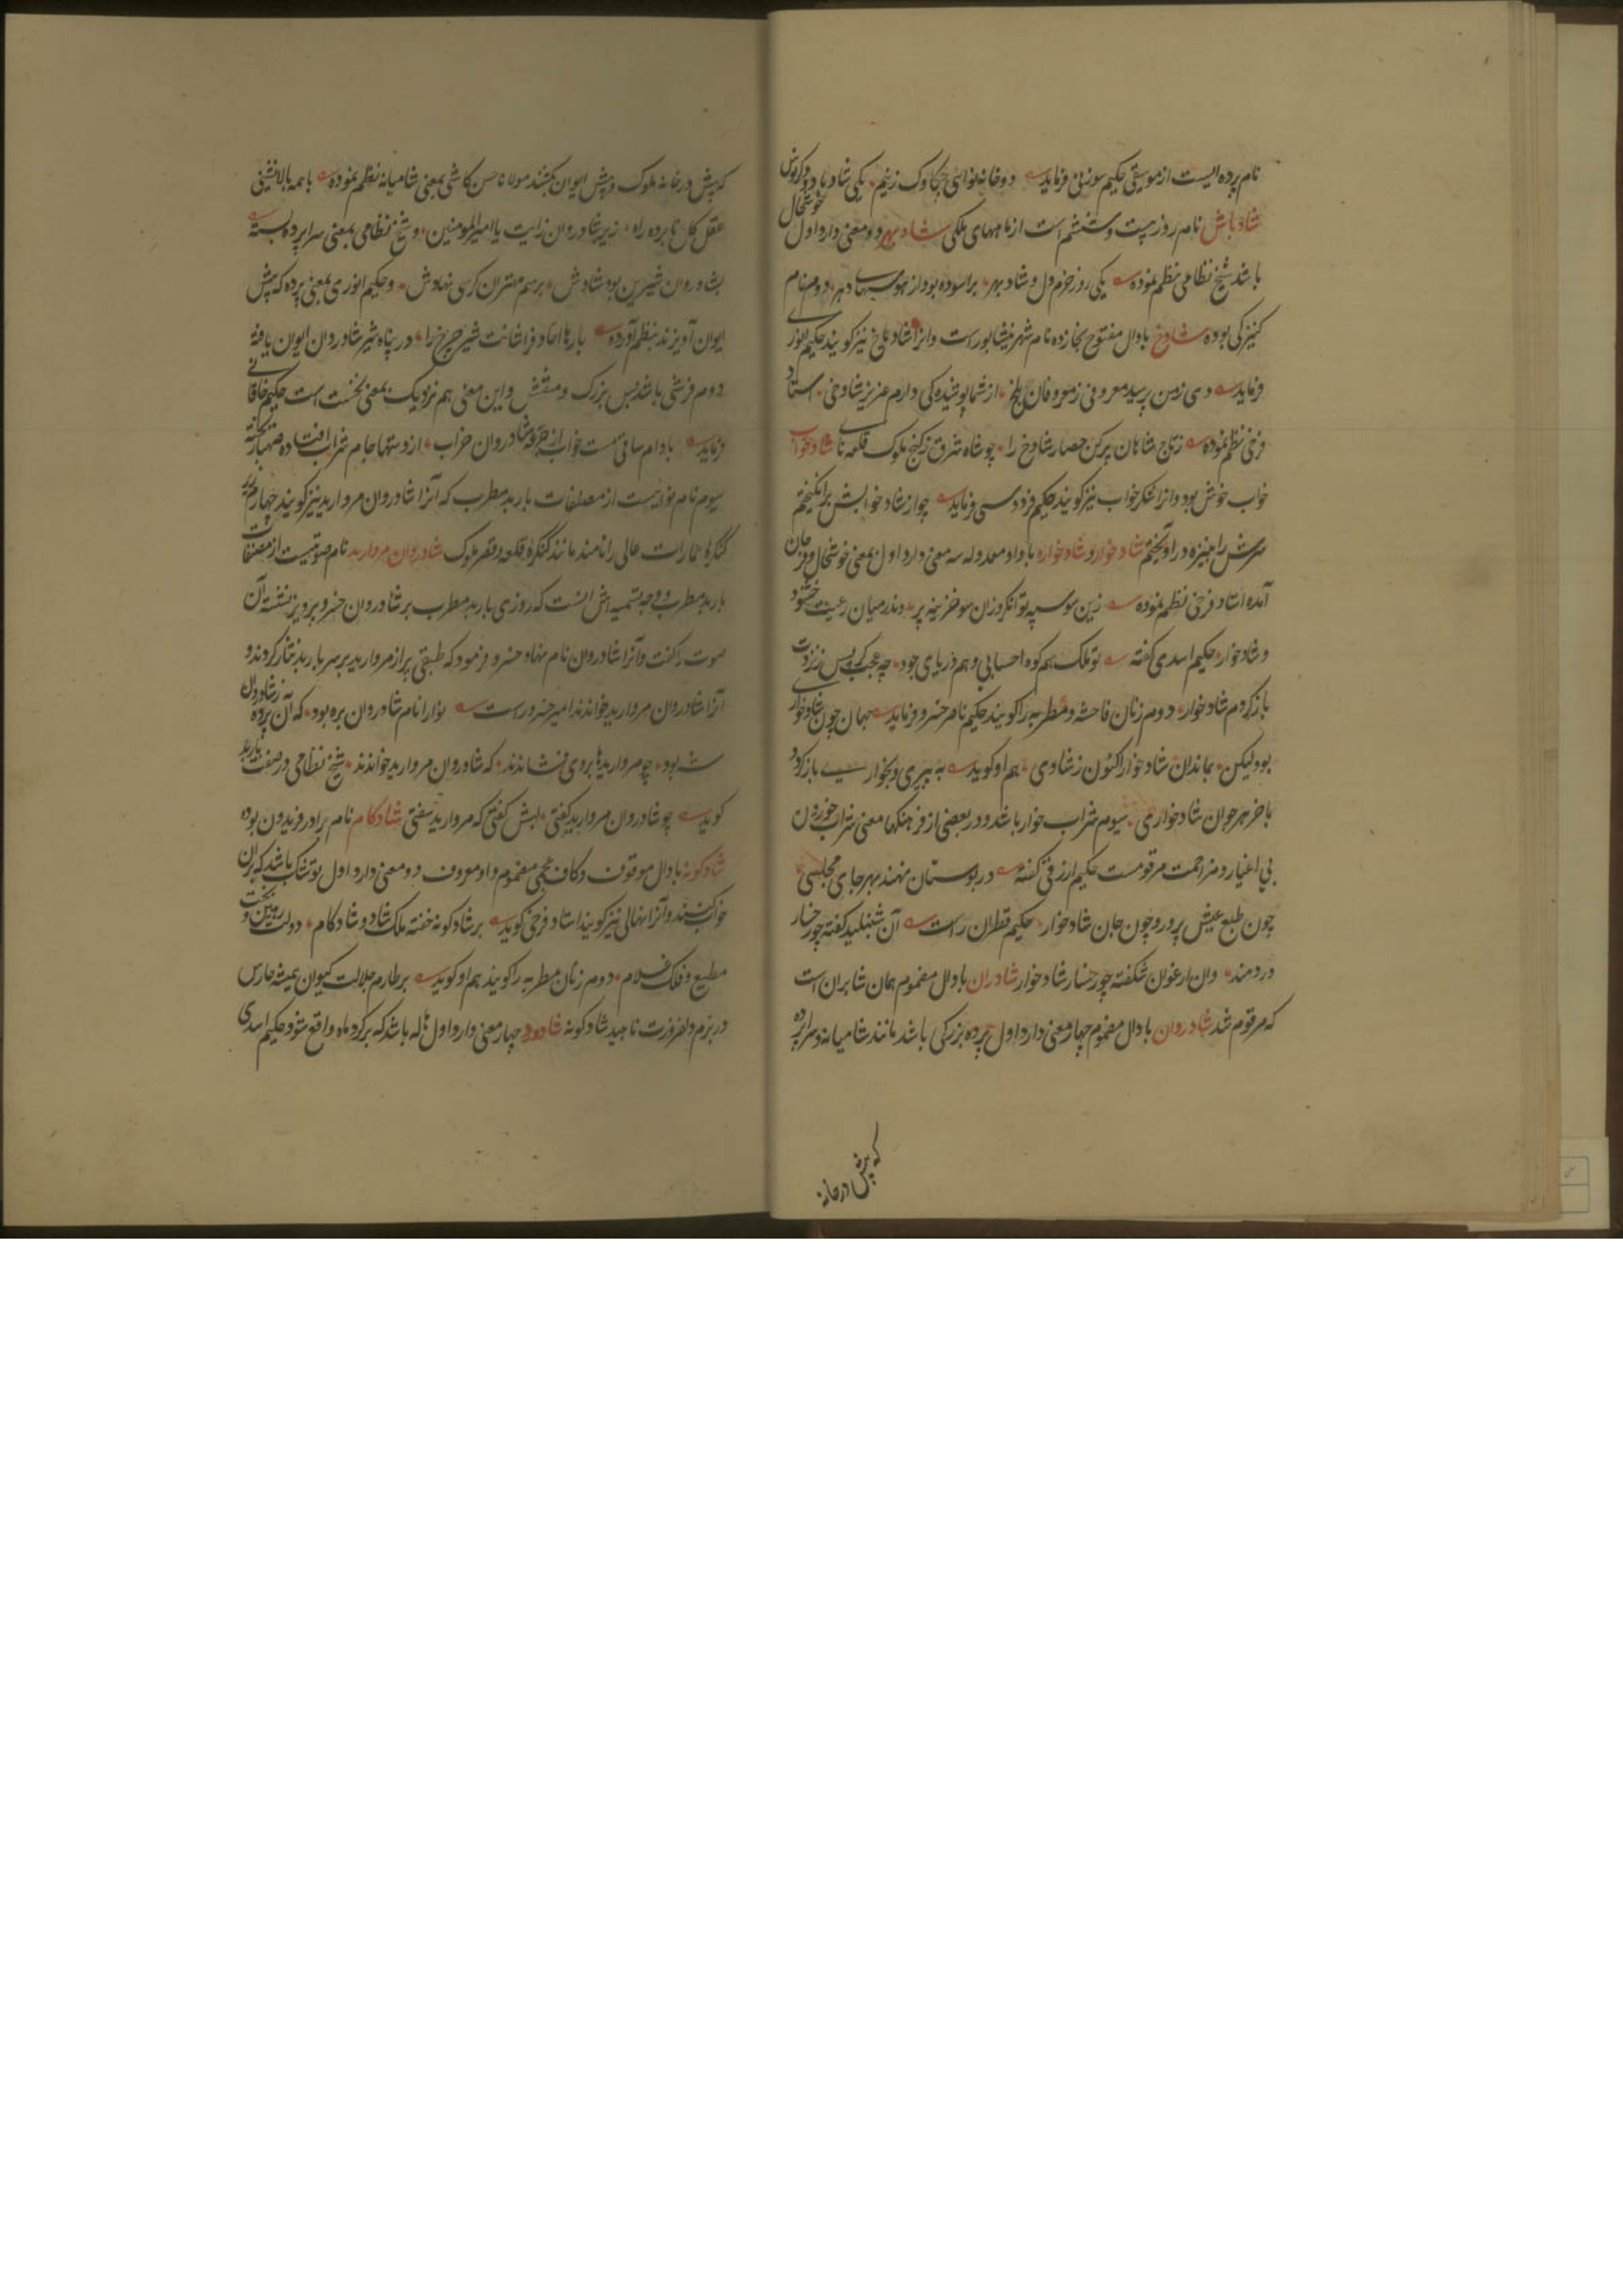 نام پرده ایست از موسیقی حکیم سوزنی فرماید دو خانه نوای چکاوک زنیم یکی شاد باد و دگر نوش
شاد باش نام روز بیست و ششم است از ماههای ملکی شاد بهر دو معنی دارد اول خوشحال
باشد شیخ نظامی نظم نموده یکی روز خرم دل و شاد بهر بر آسوده بود از دهر دوم نام
کنیزکی بوده شادخ با دال مفتوح بخا زده نام شهر نیشابور است و آنرا شادیاخ نیز گویند حکیم انوری
فرماید دی زمن پرسید معروفی ز معروفان بلخ از شما پوشیده کی دارم عزیز شادخی استاد
فرخی نظم نموده ز تاج شاهان پر کن حصار شادخ را چو شاه شرق ز گنج ملوک قلعه نای شاد خواب
خواب خوش بود و آنرا شکر خواب نیز گویند حکیم فردوسی فرماید چو از شاد خوابش برانگیختم
سرش را به نیزه در آویختم شاد خوار و شاد خواره با واو معدوله سه معنی دارد اول بمعنی خوشحال و فرحان
آمده استاد فرخی نظم نموده زین سو سپه توانگر و زان سو خزینه پر وندر میان رعیت خشنود
و شاد خوار حکیم اسدی گفته تو ملک هم کوه احسابی و هم دریای جود چه عجب گر پس نزدت
باز گردم شاد خوار دوم زنان فاحشه و مطربه را گویند حکیم ناصر خسرو فرماید جهان چون شاد خواری
بود لیکن بماندان شاد خوار اکنون ز شادی هم او گوید به پیری و بخواری باز گردد
باخر هر جوان شاد خواری سیوم شراب خوار باشد و در بعضی از فرهنگها معنی شراب خوردن
بی اغیار و مزاحمت مرقومست حکیم ازرقی گفته در بوستان نهند بهر جای مجلسی
چون طبع عیش پرور و چون جان شاد خوار حکیم قطران راست آن شنبلید کفته چو رخسار
دردمند وان ارغوان شکفته چو رخسار شاد خوار شادران با دال مضموم همان شابران است
که مرقوم شد شادروان با دال مضموم چهار معنی دارد اول پرده بزرگی باشد مانند شامیانه و سراپرده
که پیش در خانه
که پیش در خانه ملوک و پیش ایوان بکشند مولانا حسن کاشی بمعنی شامیانه نظم نموده با همه بالانشینی
عقل کل نا برده راه زیر شادروان زایت یا امیر المومنین و شیخ نظامی بمعنی سراپرده بسته
بشادروان شیرین بود شادش برسم مهتران کرسی نهادش و حکیم انوری بمعنی پرده که پیش
ایوان آویزند بنظم آورده بارها احاد فراشانت شیر چرخ را در پناه شیر شادروان ایوان یافته
دوم فرشی باشد بس بزرگ و منقش و این معنی هم نزدیک بمعنی نخست است حکیم خاقانی
فرماید بادام ساقی مست خواب از جرعه شادروان خراب از دستها جام شراب افتاده صهبا ریخته
سیوم نام نوائیست از مصنفات باربد مطرب که آنرا شادروان مروارید نیز گویند چهارم زیر
کنگرهٔ عمارات عالی را نامند مانند کنگره قلعه و قصر ملوک شادروان مروارید نام صوتیست از مصنفات
باربد مطرب و وجه تسمیه اش آنست که روزی باربد مطرب بر شادروان خسرو پرویز نشسته آن
صوت را گفت و آنرا شادروان نام نهاد خسرو فرمود که طبقی پر از مروارید بر سر باربد نثار کردند و
آنرا شادروان مروارید خواندند امیر خسرو راست نوا را نام شادروان بره بود که آن پرده ز شادروان
شه بود چو مروارید ها بروی فشاندند که شادروان مروارید خواندند شیخ نظامی در صفت باربد
گوید چو شادروان مروارید گفتی لبش گفتی که مروارید سفتی شاد کام نام برادر فریدون بوده
شاد گونه با دال موقوف و کاف عجمی مضموم و واو معروف دو معنی دارد اول توشک باشد که بران
خواب کنند و آنرا نهالی نیز گویند استاد فرخی گوید بر شاد گونه خفته ملک شاد و شاد کام دولت رهین و بخت
مطیع و فلک غلام دوم زنان مطربه را گویند هم او گوید بر طارم جلالت کیوان همیشه حارس
در بزم دلفروزت ناهید شاد گونه شادورد چهار معنی دارد اول هاله باشد که بر گرد ماه واقع شود حکیم اسدی